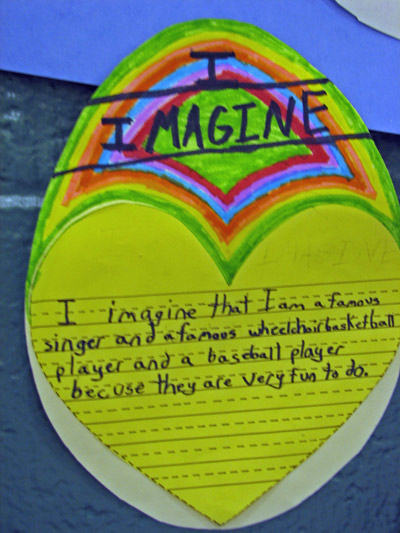 I
IMAGINE
IMAGINE
I imagine that I am a famous
singer and a famoos wheelchair basketball
player and a baseball player
becouse they are very fun to do.